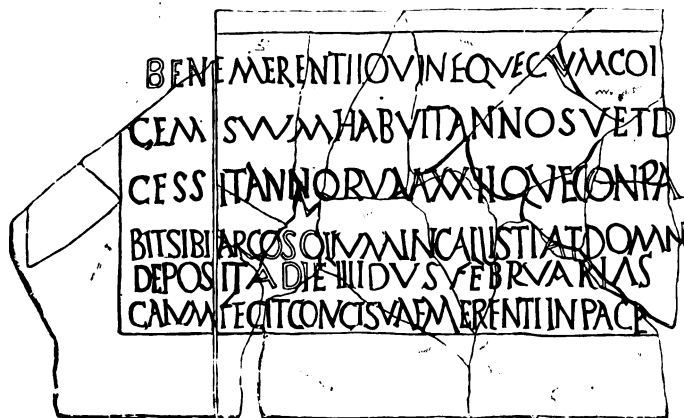 BENEMERENTI IOVINE QVE CVM COI
CEM SVVM HABVIT ANNOS V ET D
CESSIT ANNORVM XXII QVE CONPA
BIT SIBI ARCOSOLIVM IN CALLISTI AT DOMN
DEPOSITA DIE IIII IDVS FEBRVARIAS
CANVM FECIT CONCI SVAE MERENTI IN PACE